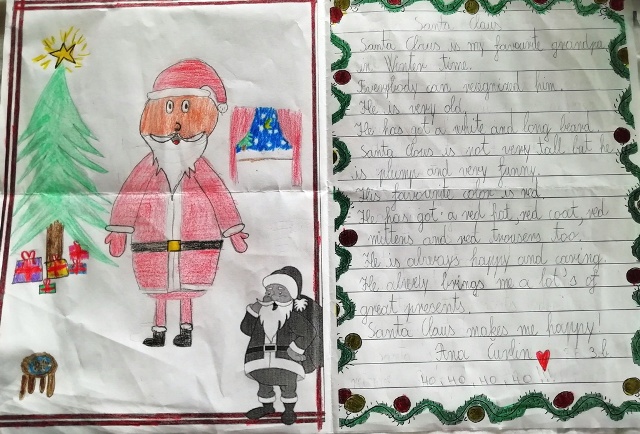 Santa Claus
Santa Claus is my favourite grandpa
in Winter time.
Everybody can recognized him.
He is very old.
He has got a white and long beard.
Santa Claus is not very tall but he
is plump and very funny.
His favourite color is red.
He has got a red hat, red coat, red
mittens and red trousers too.
He is always happy and caring.
He alwely brings me a lot's of
great presents.
Santa Claus makes me happy!
Ana 3.b
HO, HO, HO, HO